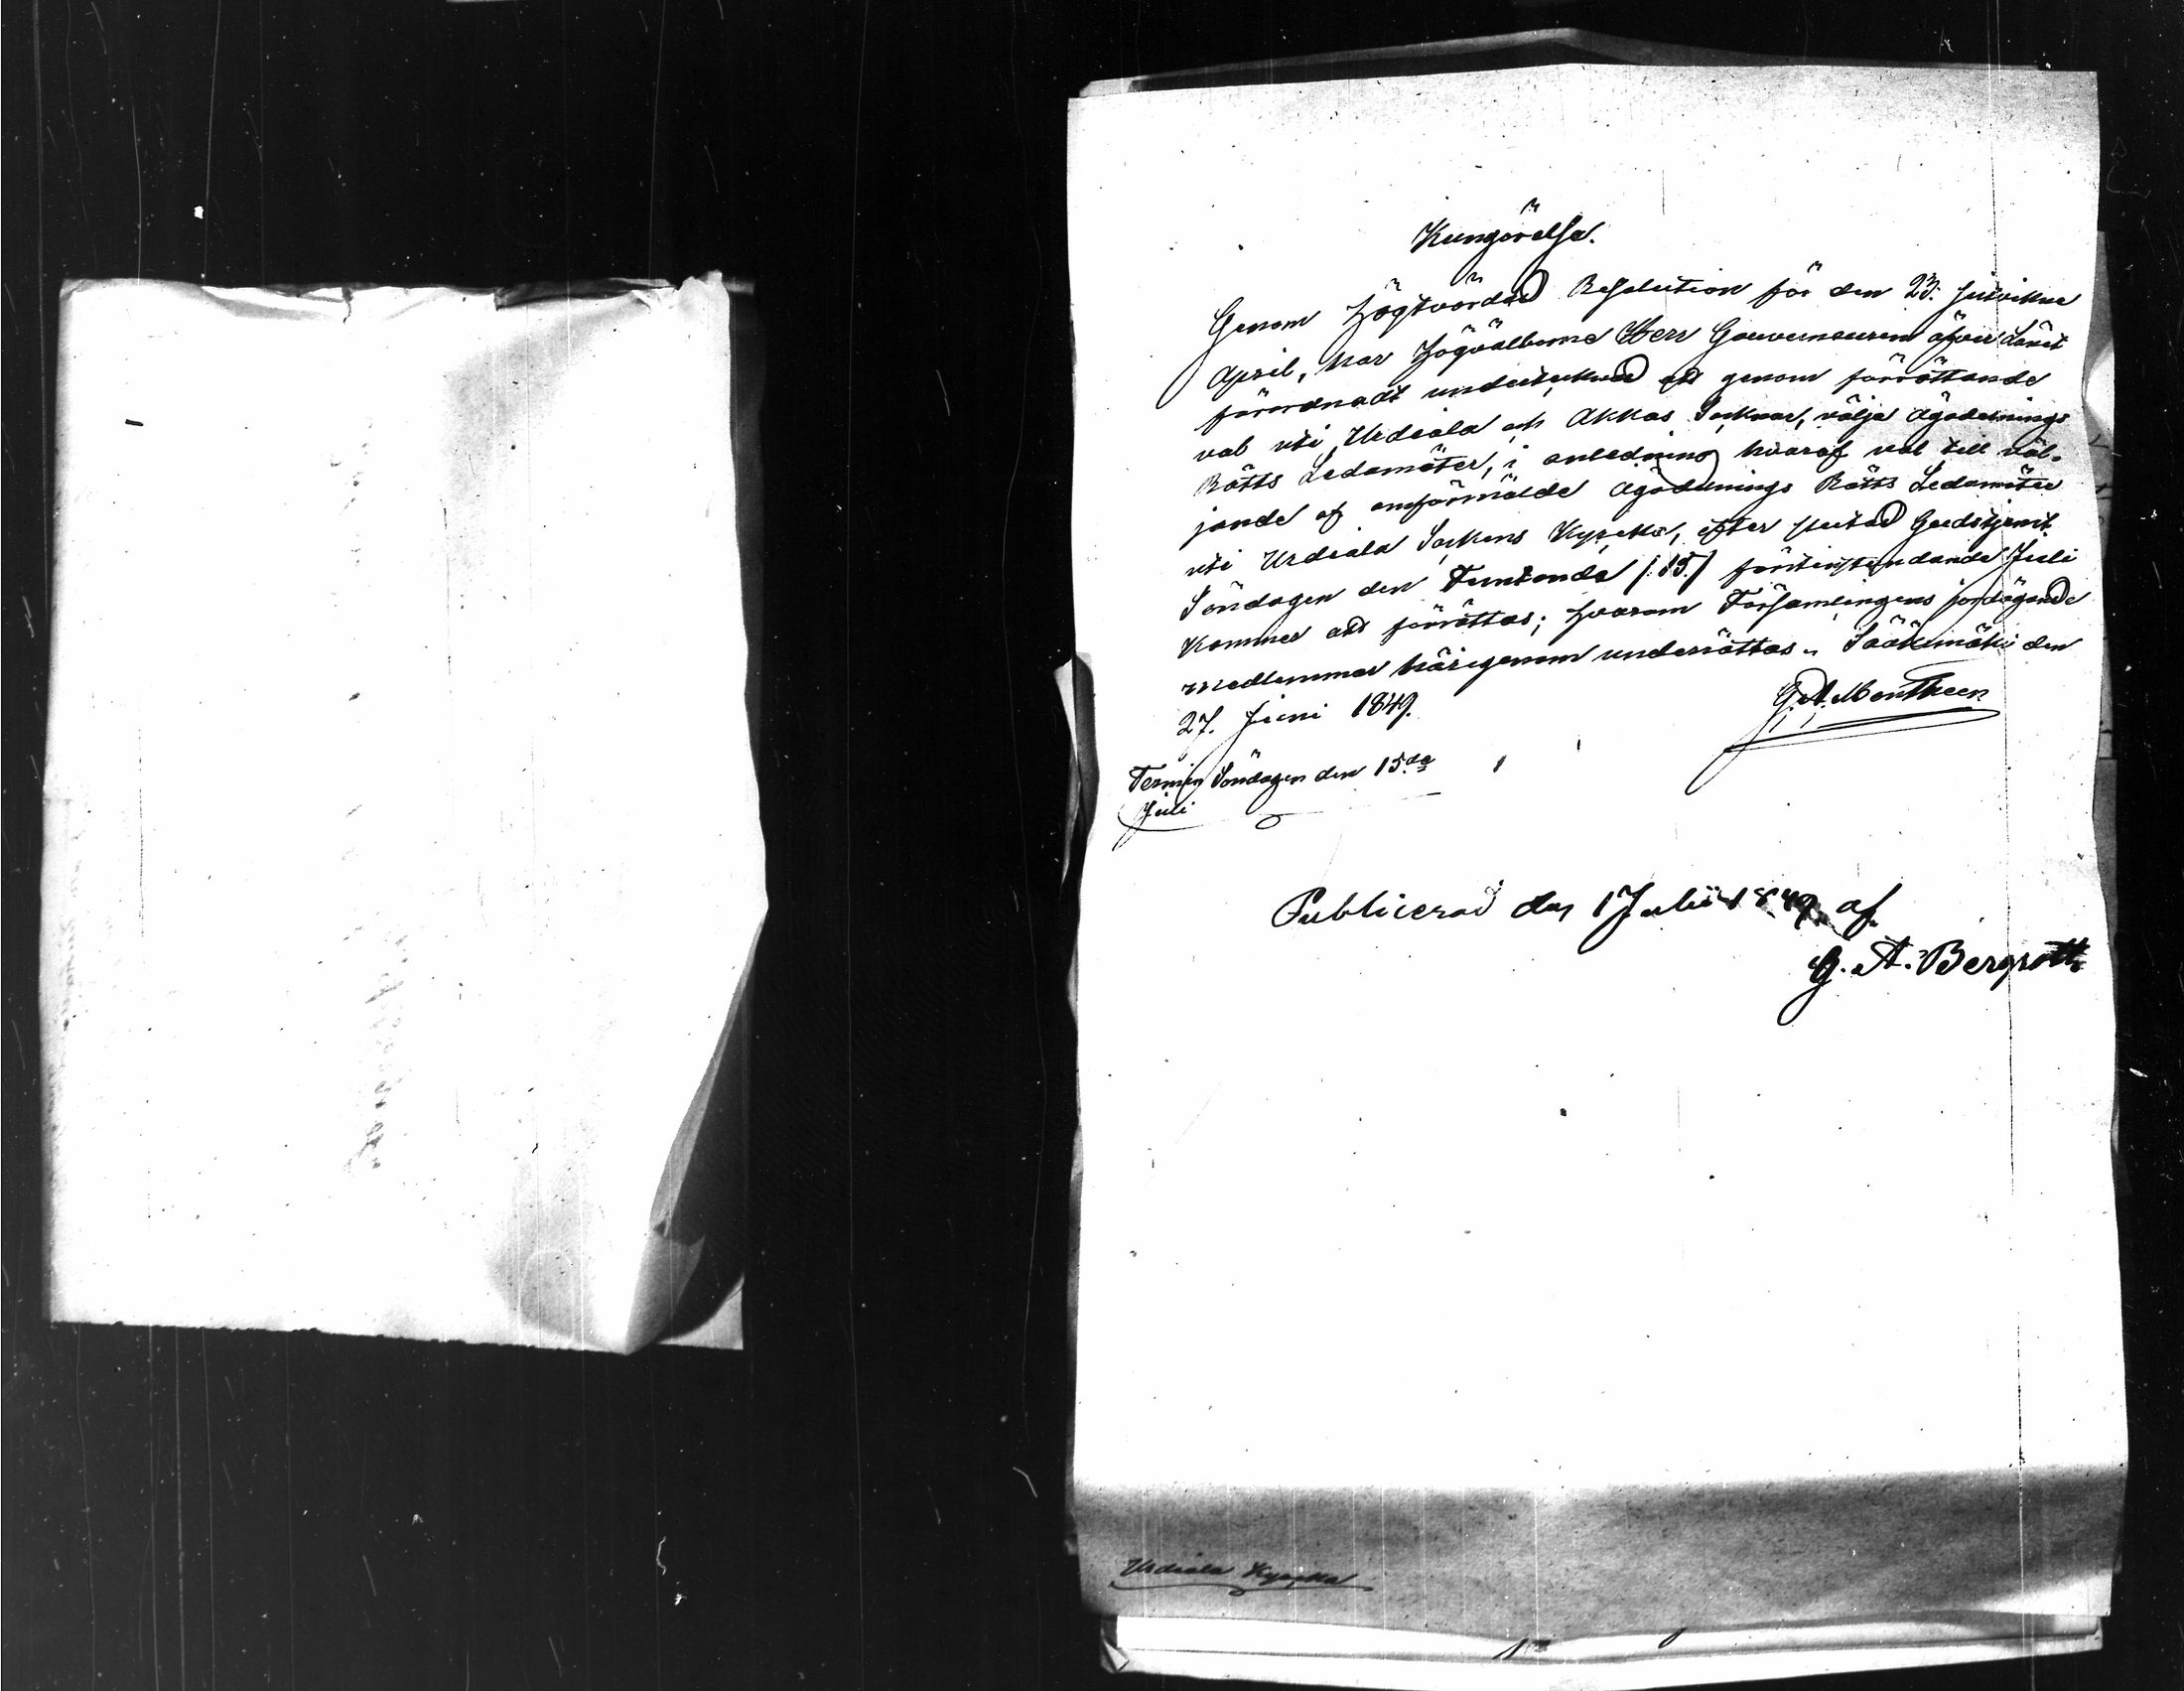 Kungörelse.
Genom högtvördad Resolution för den 23. sistvikne
April, har Högvälborne Herr Gouverneuren öfver Länet
förordnadt undertecknad att genom förrättande
val uti Urdiala och Akkas Socknar, välja Ägodelnings
Rätts Ledamöter, i anledning hvaraf val till väl-
jande af omförmälde Ägodelnings Rätts Ledamöter
uti Urdiala Sockens Kyrcka, efter slutad Gudstjenst
Söndagen den Femtonde /:15:/ förstinstundande Juli
kommer att förrättas; hvarom Församlingens jordägande
medlemmar härigenom underrättas. Sääksmäki den
27. Juni 1849.
G. A. Montheen
Termin Söndagen den 15.de
Juli
Publicerad den 1 Julii 1849 af
G. A. Bergroth
Urdiala Kyrcka